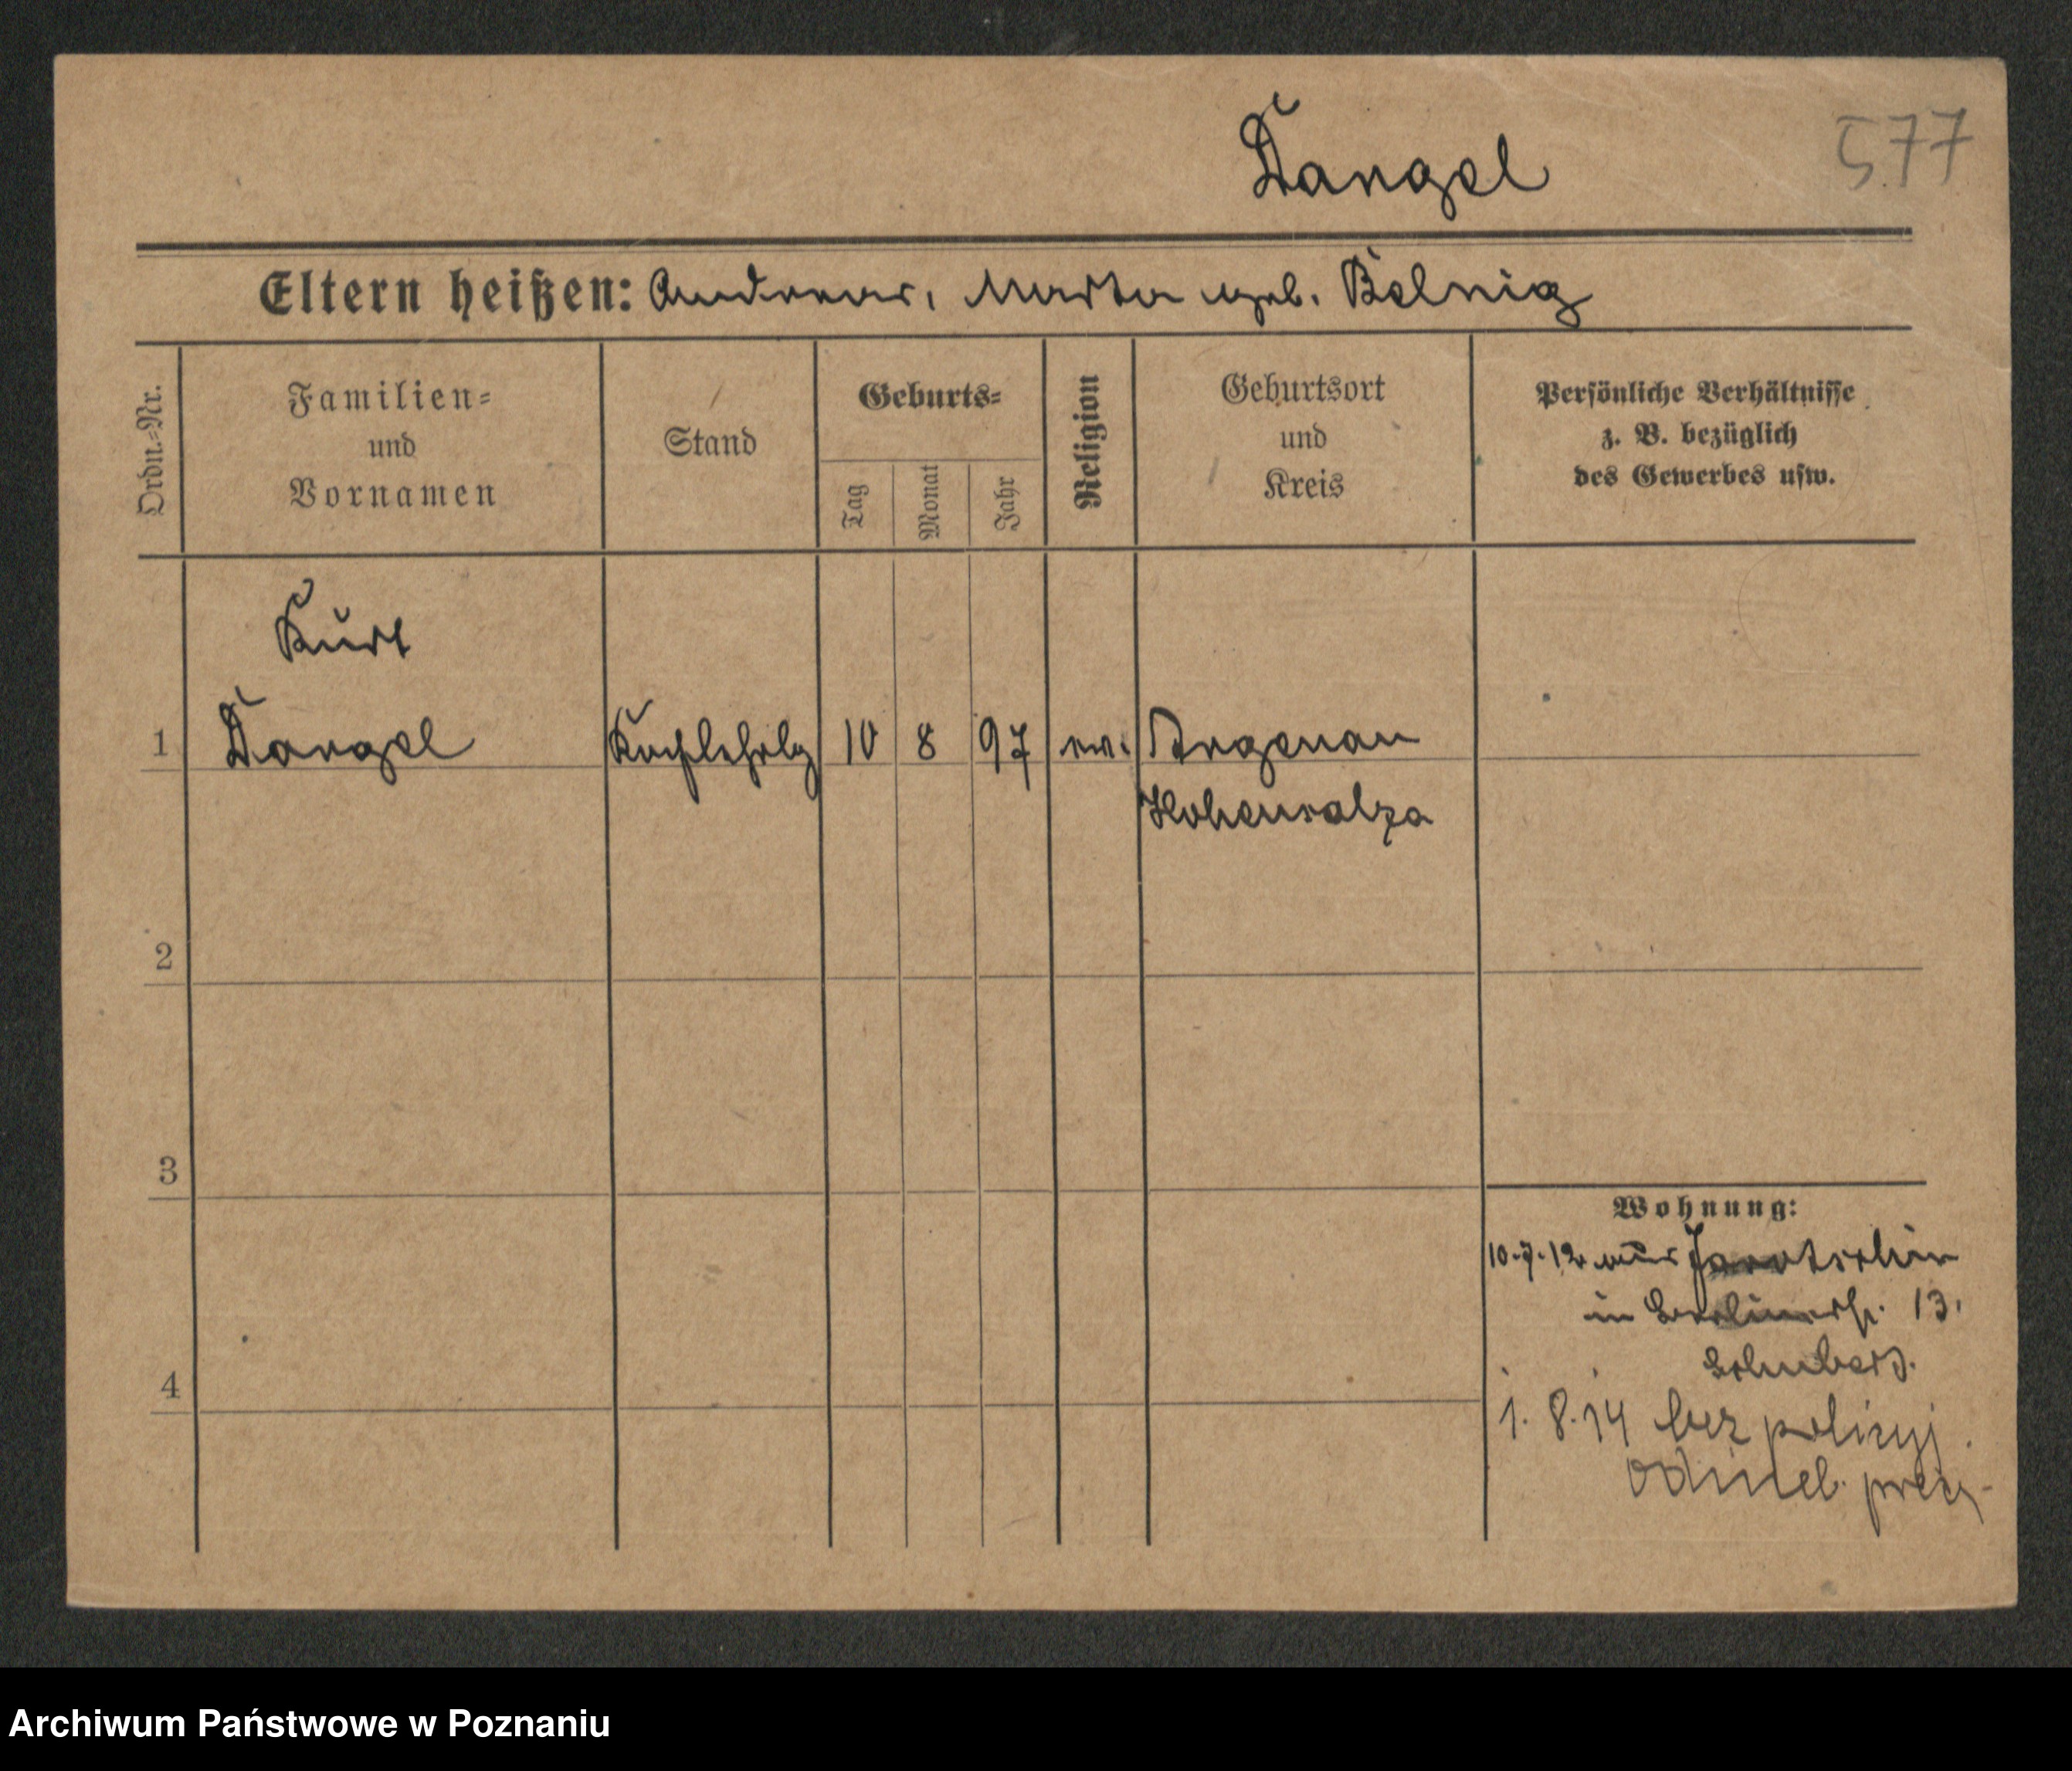 Dangel
577
Eltern heißen: Andreas, Marta geb. Belnig
Ordn.=Nr.
Familien=
und
Vornamen
Stand
Geburts=
Tag
Monat
Jahr
Religion
Geburtsort
und
Kreis
Persönliche Verhältnisse
z. B. bezüglich
des Gewerbes usw.
Kurt
1 Dangel Kochlehrlg 10 8 97 ev. Argenau
Hohensalza
2
3
4
Wohnung:
10.7.12 aus Jarotschin
in Berlinerstr. 13.
1.8.14 bez policyj.
odmel.
Archiwum Państwowe w Poznaniu